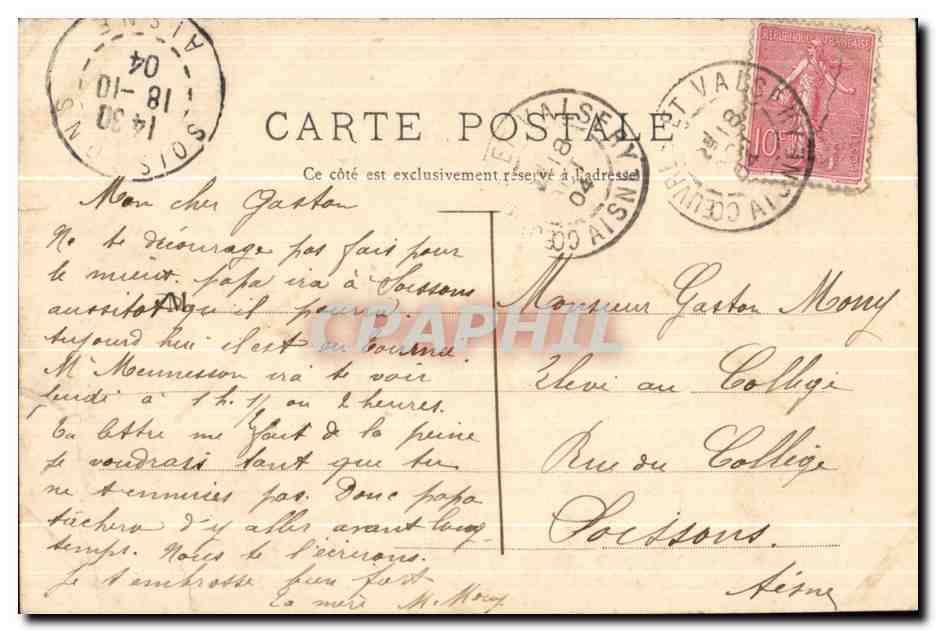 SOISSONS
AISNE
14 30
18 -10
04
CARTE POSTALE
Ce côté est exclusivement réservé à l'adresse
COEUVRES ET VALSERY
18
OCT
04
AISNE
REPUBLIQUE FRANÇAISE
10c
Mon cher Gaston
Ne te décourage pas fais pour
le mieux. papa ira à Soissons
aussitot qu'il pourra.
aujourd hui il est en tournée
Mr Mennesson ira te voir
jeudi à 1 h. 1/2 ou 2 heures.
Ta lettre me fait de la peine
je voudrais tant que tu
ne t'ennuies pas. Donc papa
tâchera d'y aller avant long-
temps. Nous te l'écrirons.
Je t'embrasse bien fort
Ta mère M. Mony
Monsieur Gaston Mony
Elève au Collège
Rue du Collège
Soissons.
Aisne
CPAPHIL